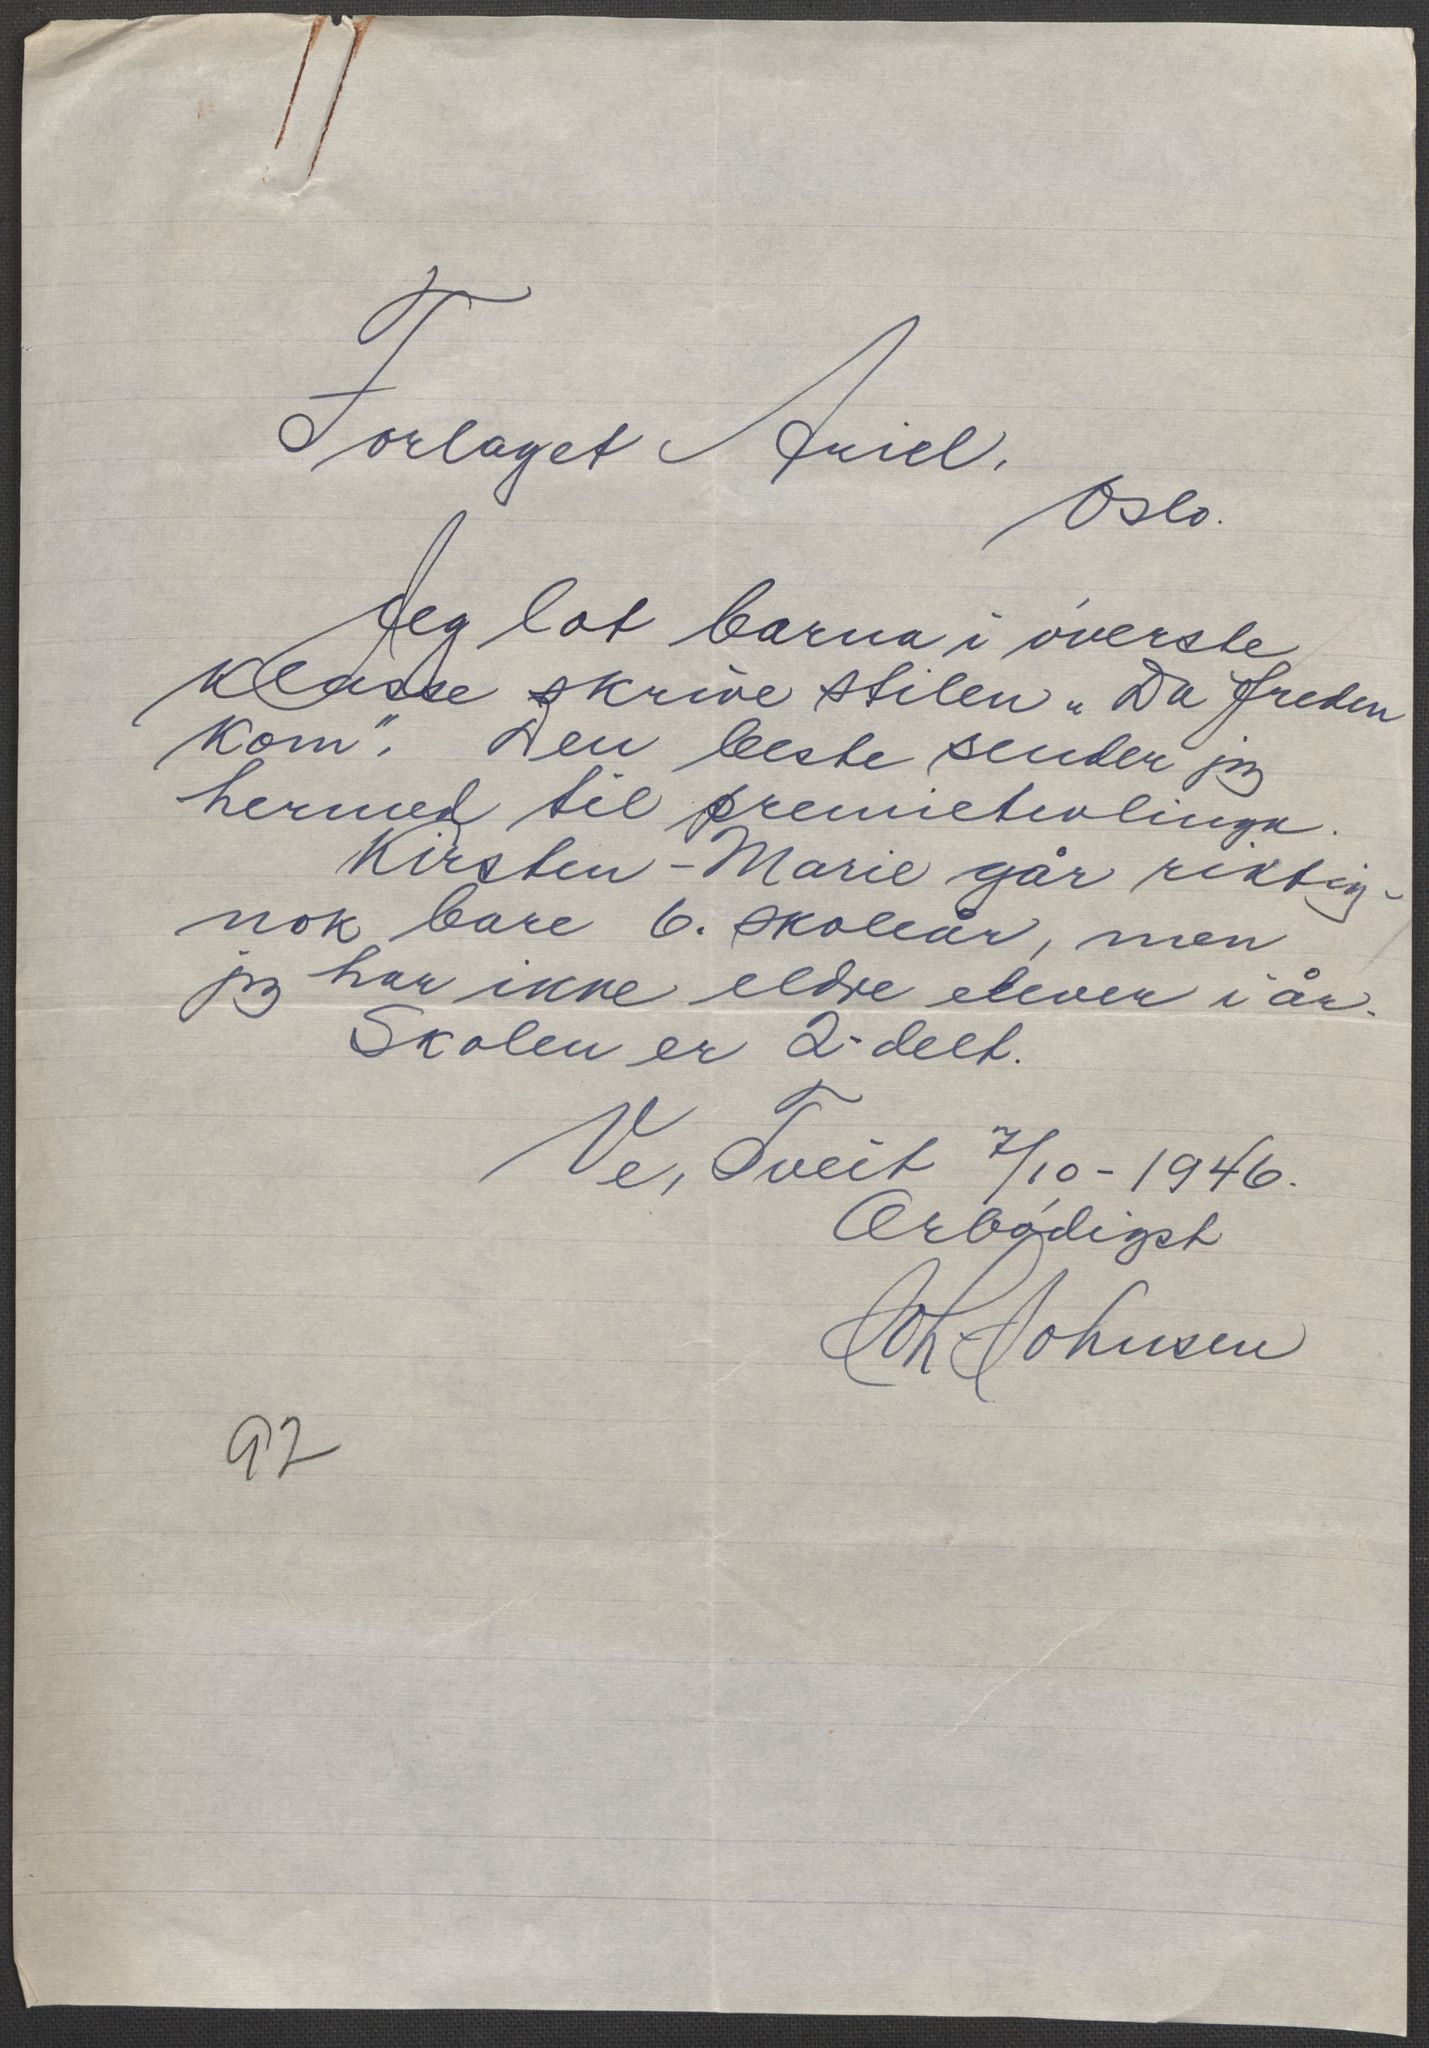 Forlaget Ariel,
Oslo.
Jeg lot barna i øverste
klasse skrive stilen „Da freden
kom". Den beste sender jeg
hermed til premietevlinga.
Kirsten-Marie går riktig-
nok bare 6. skoleår, men
jeg har ikke eldre elever i år.
Skolen er 2-delt.
Ve, Tveit 7/10-1946.
Ærbødigst
Joh. Johnsen
92